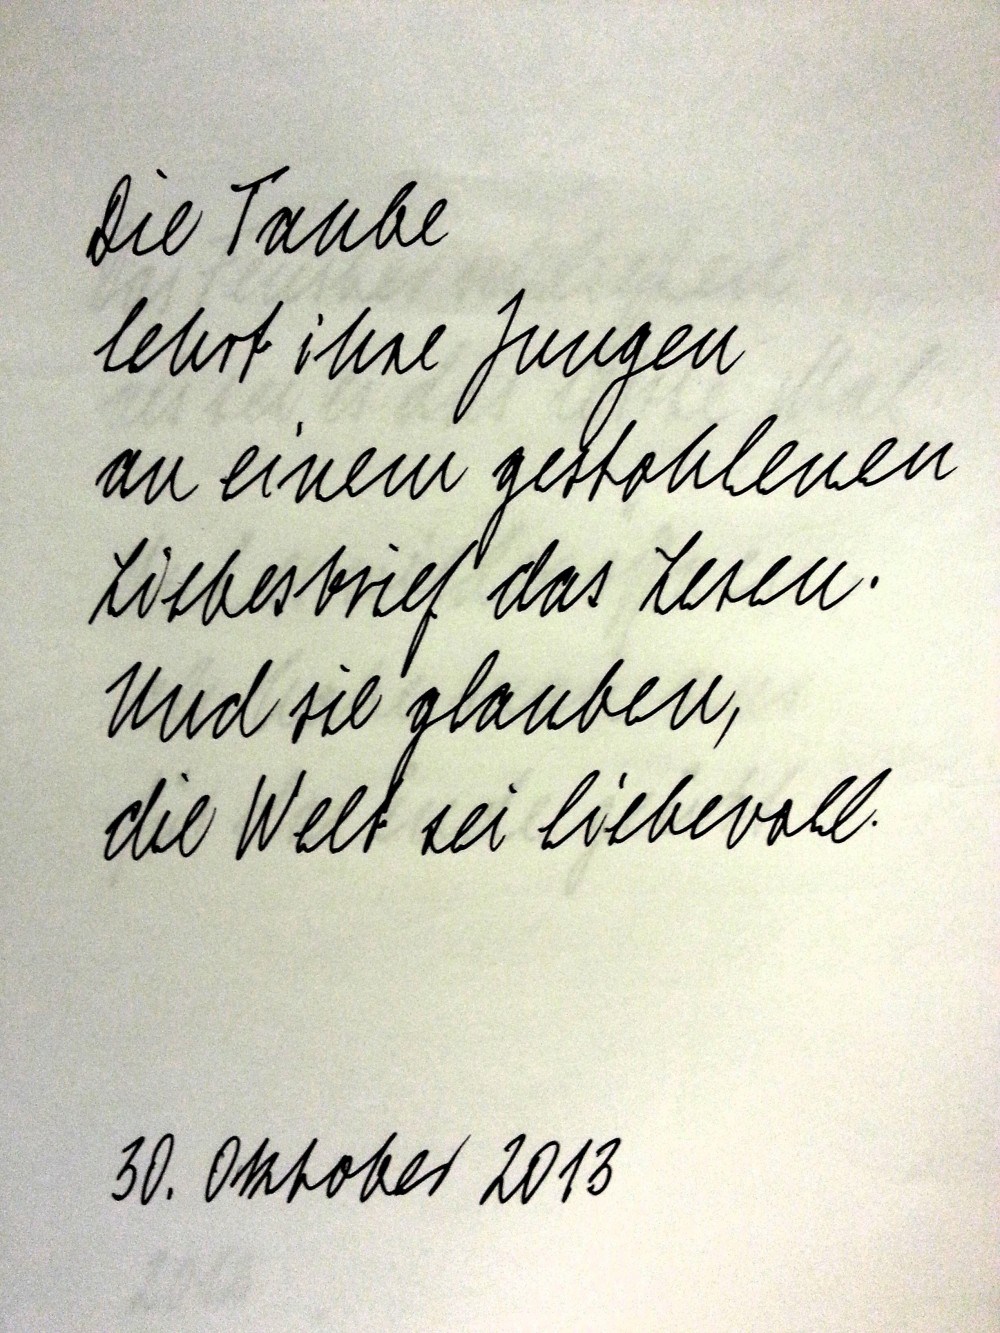 Die Taube
lehrt ihre Jungen
an einem gestohlenen
Liebesbrief das Lesen.
Und sie glauben,
die Welt sei liebevoll.
30. Oktober 2013